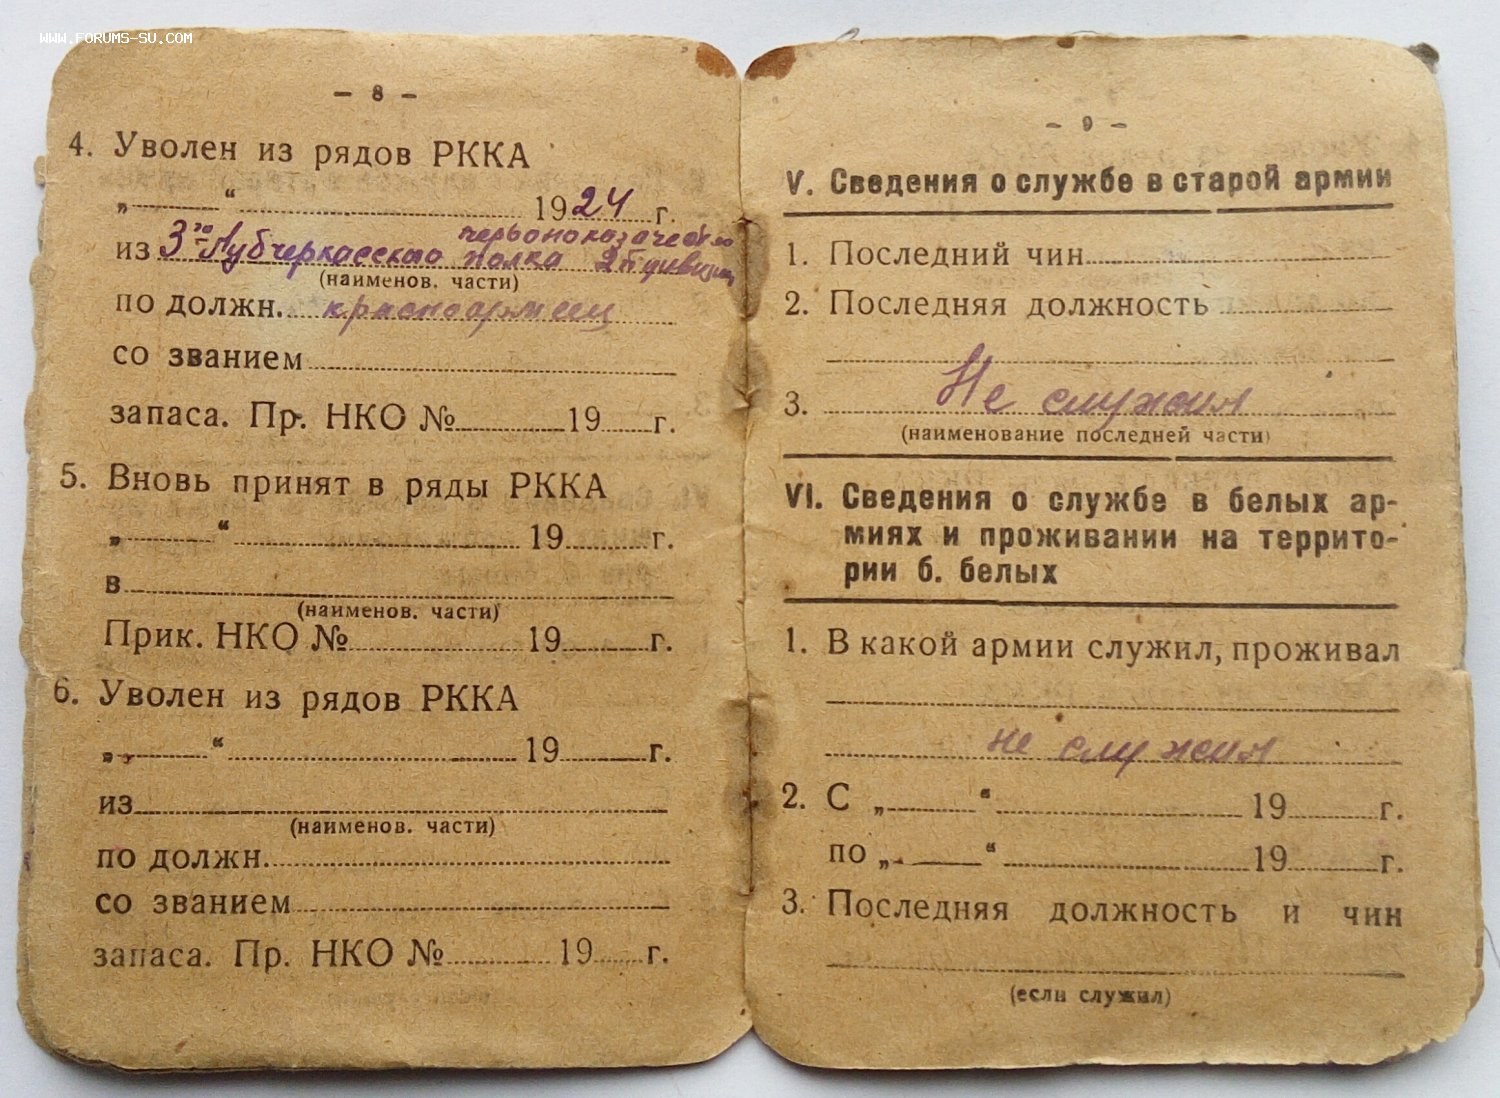 WWW.FORUMS-SU.COM
– 8 –
4. Уволен из рядов РККА
„ “ 1924 г.
червоноказачего
из 3го Лубчеркасского полка 2й дивизии
(наименов. части)
по должн. красноармеец
со званием
запаса. Пр. НКО № 19 г.
5. Вновь принят в ряды РККА
„ “ 19 г.
в
(наименов. части)
Прик. НКО № 19 г.
6. Уволен из рядов РККА
„ “ 19 г.
из
(наименов. части)
по должн.
со званием
запаса. Пр. НКО № 19 г.
– 9 –
V. Сведения о службе в старой армии
1. Последний чин
2. Последняя должность
3. Не служил
(наименование последней части)
VI. Сведения о службе в белых ар-
миях и проживании на террито-
рии б. белых
1. В какой армии служил, проживал
не служил
2. С „ “ 19 г.
по „ “ 19 г.
3. Последняя должность и чин
(если служил)